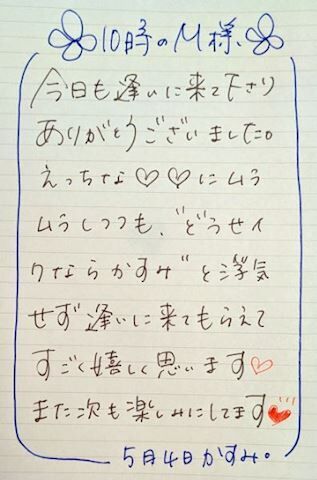 10時のM様
今日も逢いに来て下さり
ありがとうございました。
えっちな♡♡にムラ
ムラしつつも、"どうせイ
クならかすみ"と浮気
せず逢いに来てもらえて
すごく嬉しく思います♡
また次も楽しみにしてます♥
5月4日かすみ。